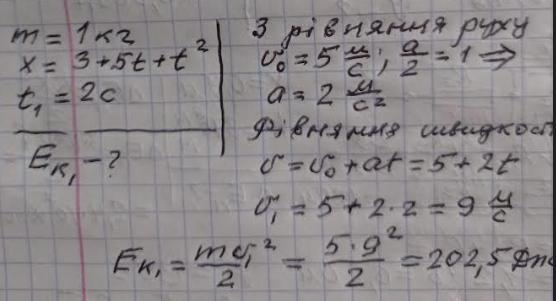 m = 1 кг
x = 3+5t+t²
t₁ = 2 с
Eк₁ - ?
З рівняння руху
v₀ = 5 м/с ; a/2 = 1 ⇒
a = 2 м/с²
Рівняння швидкост
v = v₀ + at = 5 + 2t
v₁ = 5 + 2·2 = 9 м/с
Eк₁ = mv₁²/2 = 5·9²/2 = 202,5 Дж